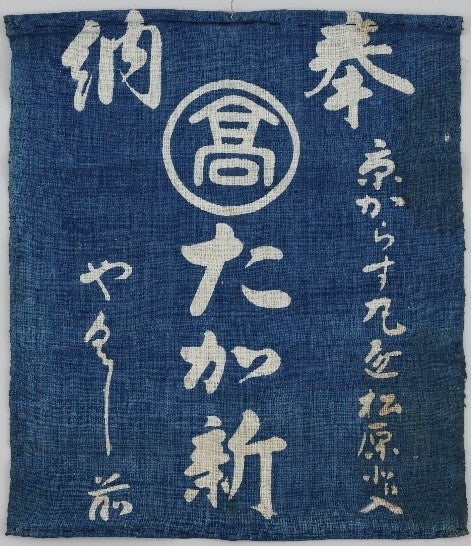 奉納
京からす丸通松原入
高
たか新
やくし前